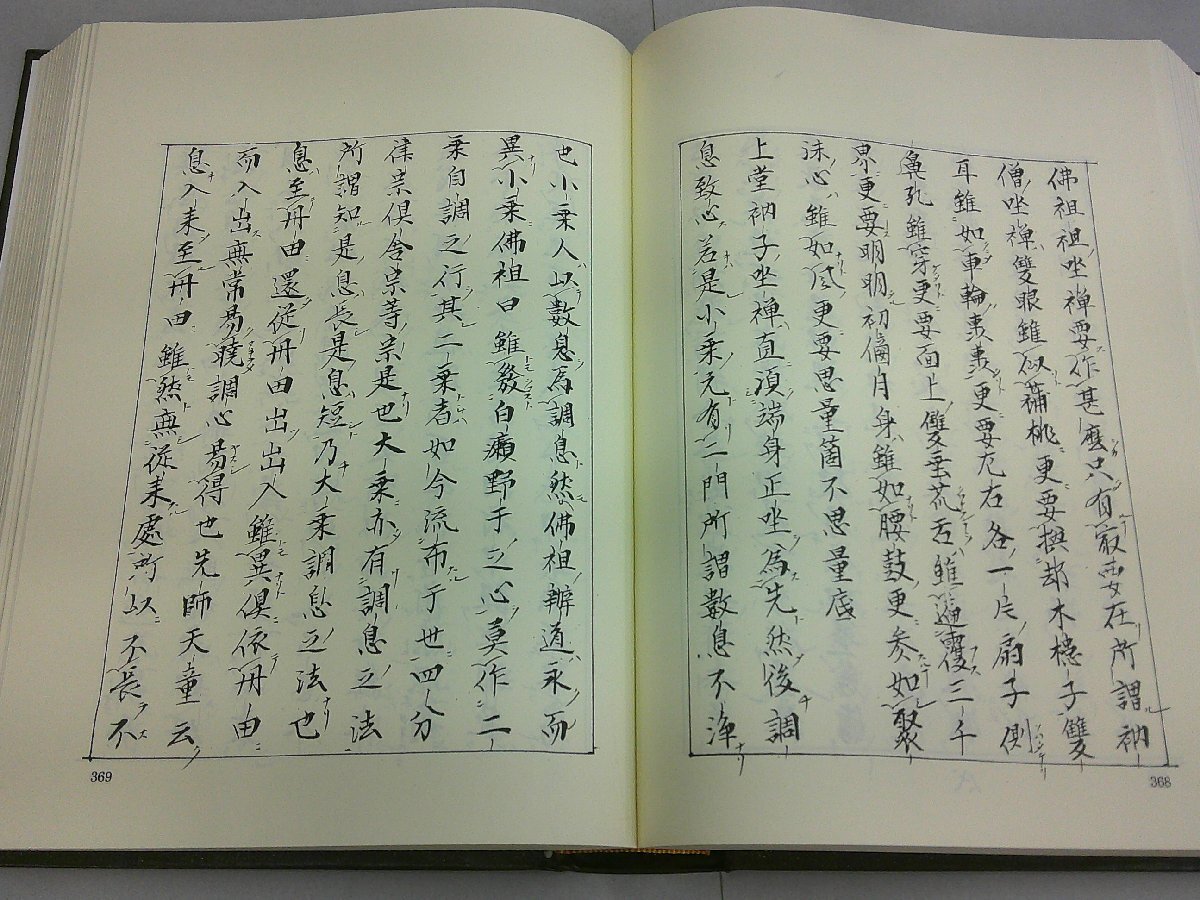 佛祖祖坐禪要作甚麼只有最要在所謂衲
僧坐禪雙眼雖似蒲桃更要換却木槵子雙
耳雖如車輪裏裏更要左右各一片扇子側
鼻孔雖穿更要面上雙垂荒舌雖遍覆三千
界更要明明初偏月身雖如腰鼓更参如聚
沫心雖如風更要思量箇不思量底
上堂衲子坐禪直須端身正坐為先然後調
息致心若是小乗元有二門所謂數息不淨
也小乗人以數息為調息然佛祖辦道永而
異小乗佛祖曰雖發白癩野干之心莫作二
乗自調之行其二乗者如今流布于世四分
律宗倶舎宗等宗是也大乗亦有調息之法
所謂知是息長是息短乃大乗調息之法也
息至丹田還從丹田出出入雖異倶依丹田
而入出無常易曉調心易得也先師天童云
息入来至丹田雖然無從来處所以不長不
369
368